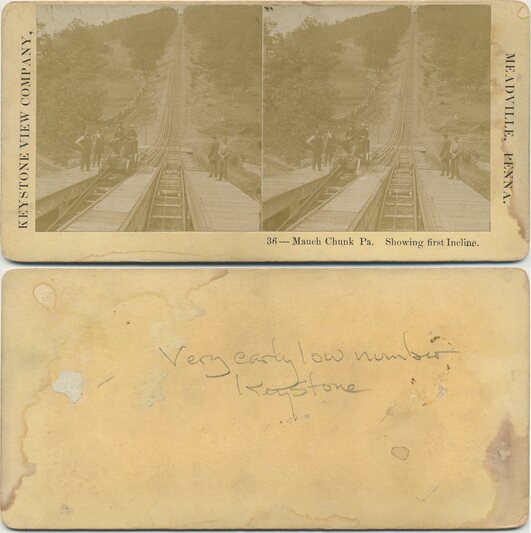 KEYSTONE VIEW COMPANY,
MEADVILLE, PENNA.
36 — Mauch Chunk Pa. Showing first Incline.
Very early low number
Keystone